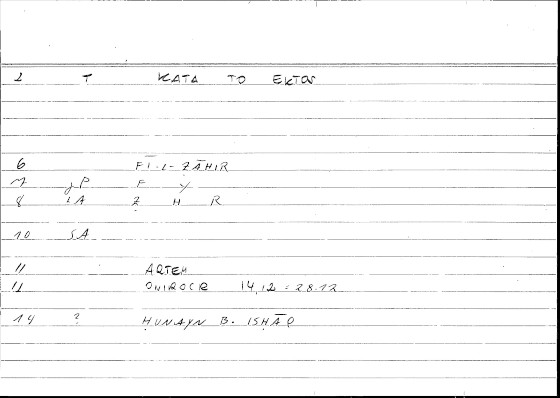 1 T KATA TO EKTOS
6 FĪ-L-ẒĀHIR
7 gP F Y
8 LA Ẓ H R
10 SA
11 ARTEM
12 ONIROCR 14,12 = 28.12
14 ? ḤUNAYN B. ISḤĀQ